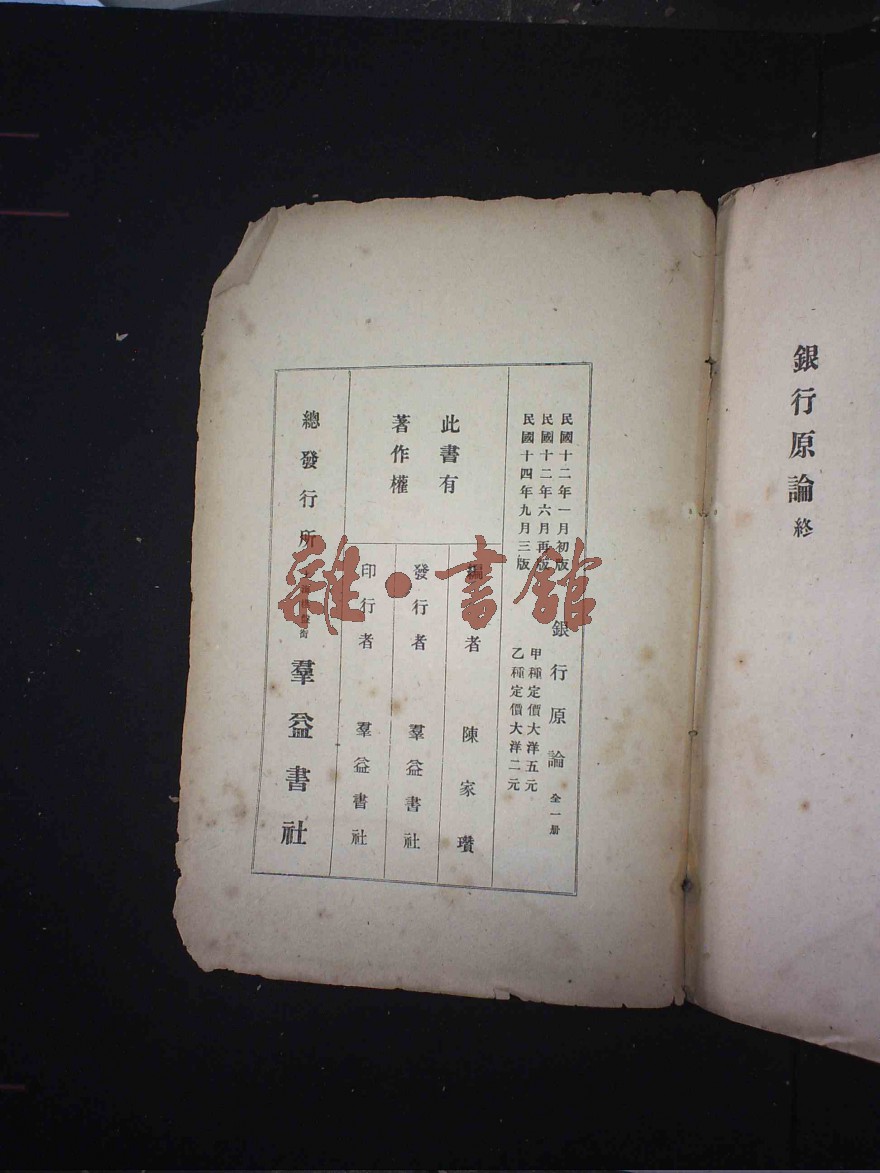 銀行原論終
民國十二年一月初版
民國十二年六月再版
民國十四年九月三版
銀行原論 全一册
甲種定價大洋五元
乙種定價大洋二元
此書有
著作權
編者 陳家瓚
發行者 羣益書社
印行者 羣益書社
總發行所 羣益書社
雜·書館